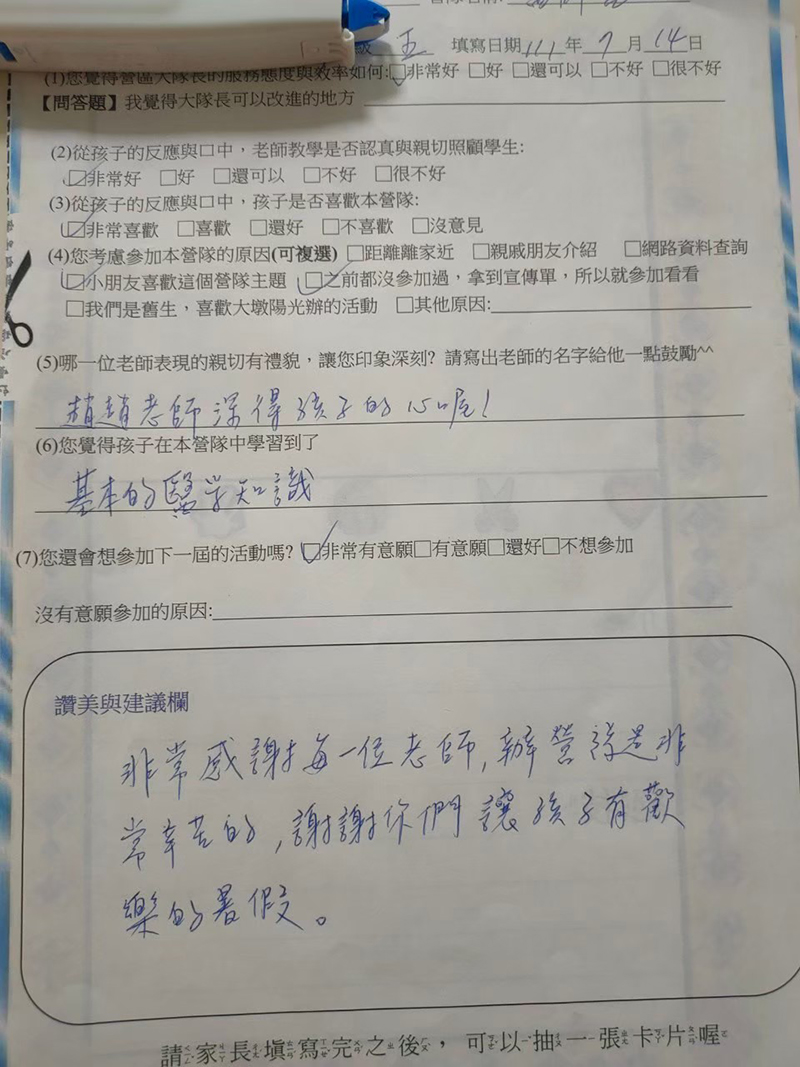 級 五 填寫日期 111 年 7 月 14 日
(1)您覺得營區大隊長的服務態度與效率如何:☑非常好 □好 □還可以 □不好 □很不好
【問答題】我覺得大隊長可以改進的地方
(2)從孩子的反應與口中，老師教學是否認真與親切照顧學生:
☑非常好 □好 □還可以 □不好 □很不好
(3)從孩子的反應與口中，孩子是否喜歡本營隊:
☑非常喜歡 □喜歡 □還好 □不喜歡 □沒意見
(4)您考慮參加本營隊的原因(可複選) □距離離家近 □親戚朋友介紹 □網路資料查詢
☑小朋友喜歡這個營隊主題 ☑之前都沒參加過，拿到宣傳單，所以就參加看看
□我們是舊生，喜歡大墩陽光辦的活動 □其他原因:
(5)哪一位老師表現的親切有禮貌，讓您印象深刻? 請寫出老師的名字給他一點鼓勵^^
趙趙老師深得孩子的心喔!
(6)您覺得孩子在本營隊中學習到了
基本的醫学知識
(7)您還會想參加下一屆的活動嗎? ☑非常有意願□有意願□還好□不想參加
沒有意願參加的原因:
讚美與建議欄
非常感謝每一位老師,辦營隊是非
常辛苦的,謝謝你們讓孩子有歡
樂的暑假。
請家長填寫完之後，可以抽一張卡片喔